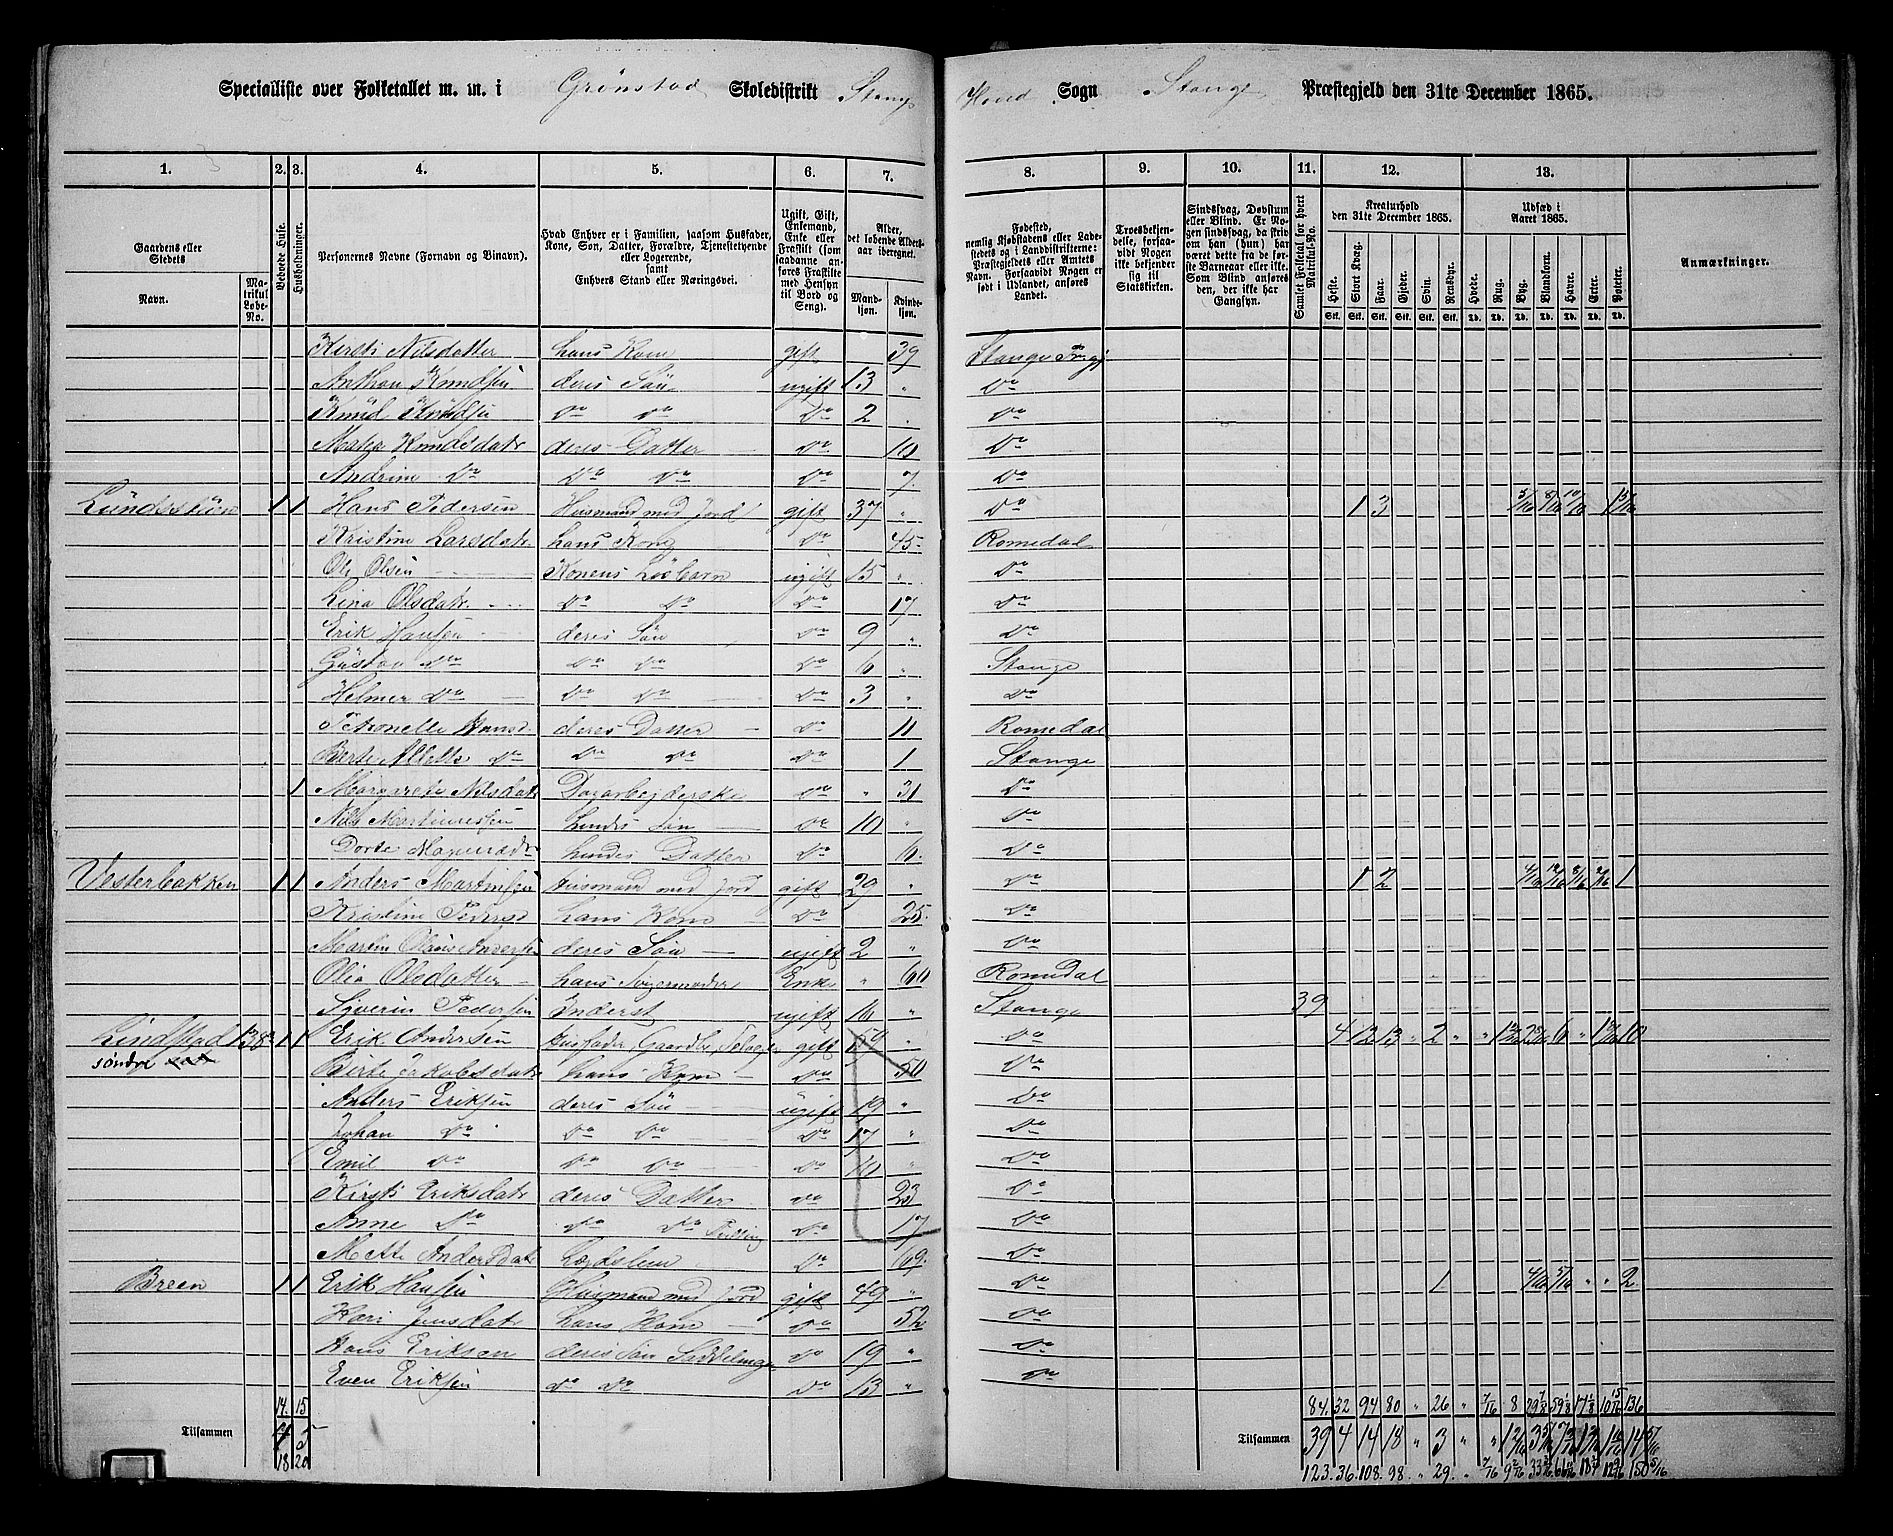 Specialliste over Folketallet m. m. i Grönstad Skoledistrikt Stange Hoved Sogn Stange Præstegjeld den 31te December 1865.
1. 2. 3. 4. 5. 6. 7. 8. 9. 10. 11. 12. 13.
Gaardens eller Stedets
Navn. Matrikul Løbe-No.
Beboede Huse.
Husholdninger.
Personernes Navne (Fornavn og Binavn).
Hvad Enhver er i Familien, saasom Husfader, Kone, Søn, Datter, Forældre, Tjenestetyende eller Logerende, samt Enhvers Stand eller Næringsvei.
Ugift, Gift, Enkemand, Enke eller Fraskilt (som saadanne anføres Fraskilte med Hensyn til Bord og Seng).
Alder, det løbende Aldersaar iberegnet.
Mandkjøn. Kvindekjøn.
Fødested, nemlig Kjøbstadens eller Ladestedets og i Landdistrikterne: Præstegjeldets eller Amtets Navn. Forsaavidt Nogen er født i Udlandet, anføres Landet.
Troesbekjendelse, forsaavidt Nogen ikke bekjender sig til Statskirken.
Sindssvag, Døvstum eller Blind. Er Nogen sindssvag, da skriv om han (hun) har været dette fra de første Barneaar eller ikke. Som Blind anføres den, der ikke har Gangsyn.
Samlet Folketal for hvert Matrikul-No.
Kreaturhold den 31te December 1865.
Heste. Stort Kvæg. Faar. Gjeder. Svin. Rensdyr.
Udsæd i Aaret 1865.
Hvede. Rug. Byg. Blandkorn. Havre. Erter. Poteter.
Anmærkninger.
Kirsti Nilsdatter hans Kone gift 39 Stange Prgj
Anthon Knudsen deres Søn ugift 13 " Do
Knud Knudsen Do Do Do 2 " Do
Maria Knudsdatr deres Datter Do 10 Do
Andrine Do Do Do Do 7 Do
1 1 Hans Pedersen Husmand med Jord gift 37 " Do 1 3 5/16 8/16 10/16
Kristine Larsdatr hans Kone Do 45 Romedal
Ole Olsen Konens Løsbarn ugift 15 " Do
Lina Olsdatr. Do Do Do 17 Do
Erik Hansen deres Søn Do 9 " Do
Gustav Do Do Do Do 6 " Stange
Helmer Do Do Do Do 3 " Do
Petronelle Hansd. deres Datter Do 11 Romedal
Berte Allette Do Do Do Do 1 Stange
1 Margarete Nilsdatr Dagarbejderske Do " 31 Do
Nils Martinussen hendes Søn Do 10 " Do
Dorte hendes Datter Do 6. Do
Vesterbakken 1 1 Anders Martinsen Husmand med Jord gift 29 " Do 1 2 4/16 12/16 8/16 2/16 1
Kristine Pedersd hans Kone Do 25 Do
Martin Olaus Andersen deres Søn ugift 2 " Do
Olia Olsdatter hans Svigermoder Enke " 60 Romedal
Syverin Pedersen Inderst ugift 16 " Stange 39
Lindstad 138 1 1 Erik Andersen Husfader, Gaardbr, Selveier gift 59 " Do 4 13 13 " 2 " " 6 " 10
søndre
Birte Jakobsdatr hans Kone Do 50 Do
Anders Eriksen deres Søn ugift 19 " Do
Johan Do Do Do Do 17 " Do
Emil Do Do Do Do 10 " Do
Kirsti Eriksdatr deres Datter Do 23 Do
Anne Do Do Do Tvilling Do 17 Do
Mette Andersdatr Lægdslem Do 69 Do
Breen 1 1 Erik Hansen Husmand med Jord gift 49 " Do 1 4/16 5/16 " " 2
Kari Jensdatr hans Kone Do 52 Do
Hans Eriksen deres Søn Saddelmager Do 19 " Do
Even Eriksen Do Do Do 13 " Do
14. 15 84. 32 94 80 " 26 " 7/16 8 29 7/8 59 1/8 17 1/8 10 15/16 136
Tilsammen 4 5 Tilsammen 39 4 14 18 " 3 "
18 20 123. 36. 108. 98. " 29. " 7/16 150 5/16